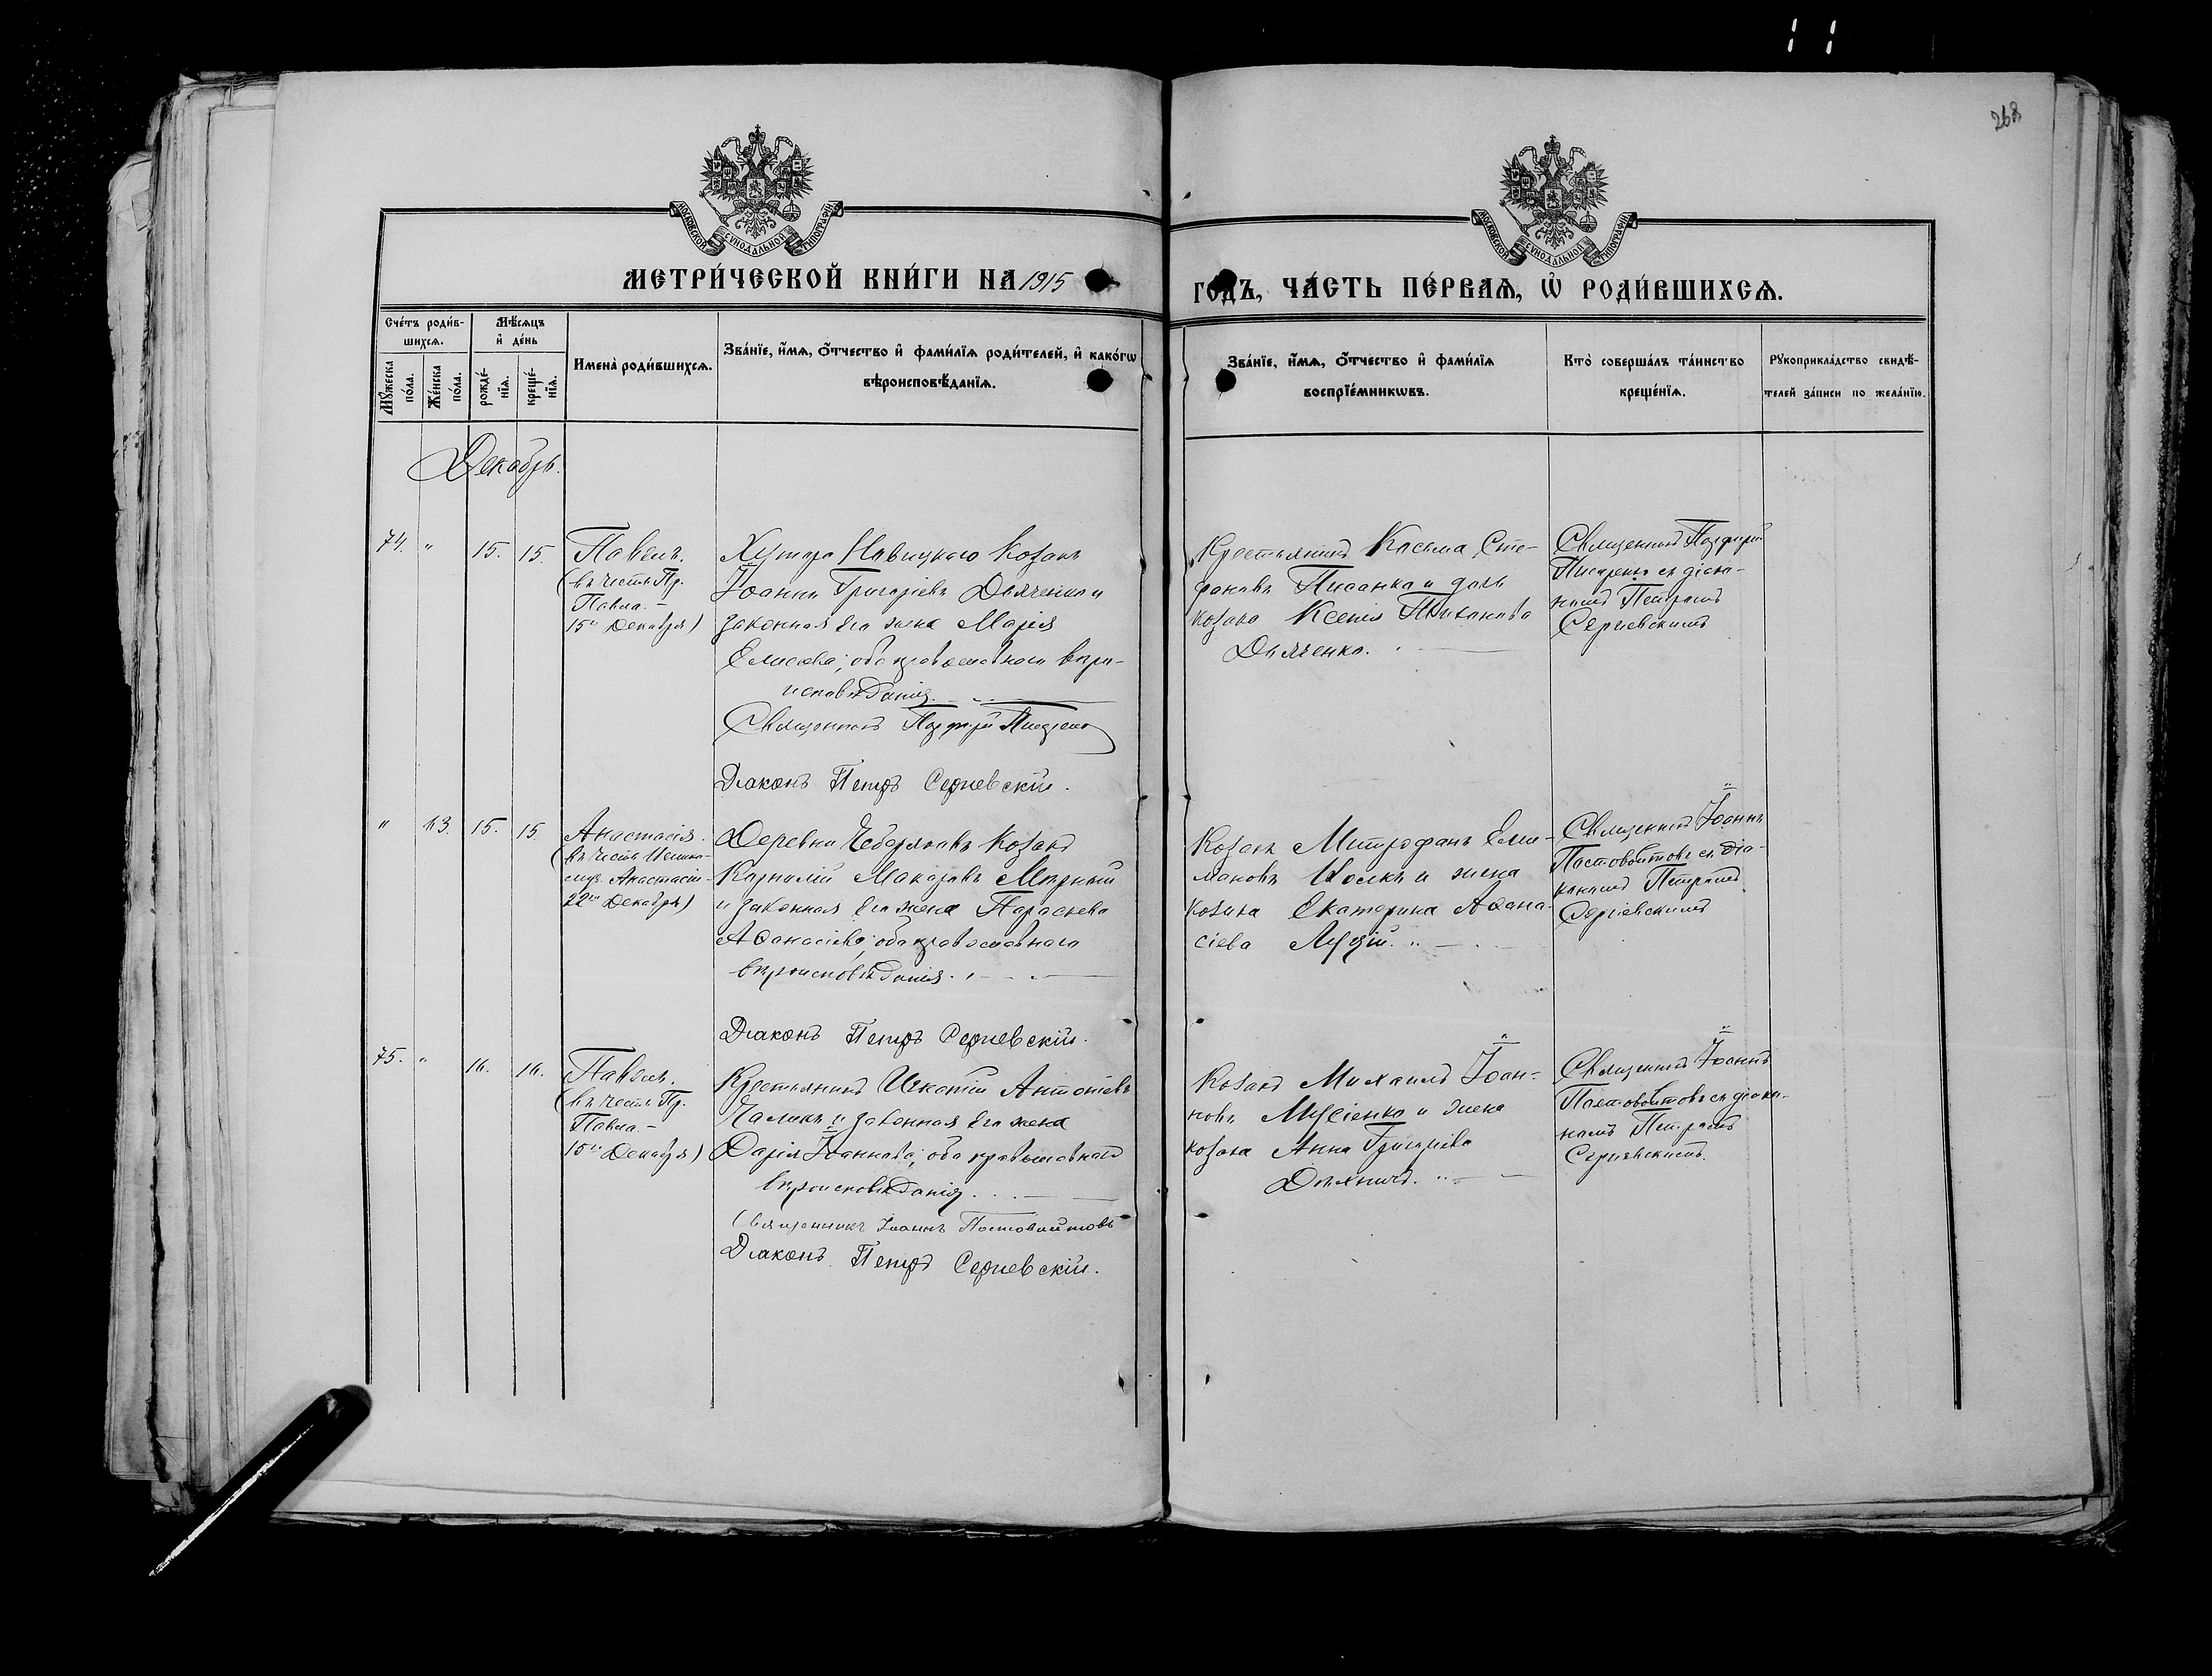 268
МОСКОВСКОЙ СѴНОДАЛЬНОЙ ТИПОГРАФІИ
МОСКОВСКОЙ СѴНОДАЛЬНОЙ ТИПОГРАФІИ
МЕТРИ́ЧЕСКОЙ КНИ́ГИ НА 1915
ГОДЪ, ЧА́СТЬ ПЕ́РВАѦ, Ѽ РОДИ́ВШИХСѦ.
Сче́тъ роди́в-
шихсѧ.
Мѣ́сѧцъ
и҆ де́нь
Мꙋ́жеска
по́ла.
Же́нска
по́ла.
рожде́-
нїѧ.
креще́-
нїѧ.
Имена̀ роди́вшихсѧ.
Зва́нїе, и҆́мѧ, ѻ҆́тчество и҆ фами́лїѧ роди́телей, и҆ како́гѡ
вѣроисповѣ́данїѧ.
Зва́нїе, и҆́мѧ, ѻ҆́тчество и҆ фами́лїѧ
воспрїе́мникѡвъ.
Кто̀ соверша́лъ та́инство
креще́нїѧ.
Рꙋкоприкла́дство свидѣ́-
телей за́писи по жела́нїю.
Декабрь.
74. " 15. 15. Павелъ.
(въ честь Пр.
Павла. –
15го Декабря)
Хутора Новицкаго Козакъ
Іоаннъ Григоріевъ Дьяченко и
законная его жена Марія
Елисеева; оба православнаго вѣро-
исповѣданія.
Священникъ Порфирій Писаренко
Діаконъ Петръ Сергіевскій.
Крестьянинъ Косьма Сте-
фановъ Писанка и дочь
козака Ксенія Тихонова
Дьяченко.
Священникъ Порфирій
Писаренко съ діако-
номъ Петромъ
Сергіевскимъ
" 63. 15. 15. Анастасія.
(въ честь
муч. Анастасіи
22го Декабря)
Деревни Козакъ
Корнилій Макаровъ Мѣдный
и законная его жена Параскева
Аѳанасіева; оба православнаго
вѣроисповѣданія.
Діаконъ Петръ Сергіевскій.
Козакъ Митрофанъ
и жена
козака Екатерина Аѳана-
сіева
Священникъ Іоаннъ
Постовойтовъ съ діа-
кономъ Петромъ
Сергіевскимъ
75. " 16. 16. Павелъ.
(въ честь Пр.
Павла. –
15го Декабря)
Крестьянинъ Игнатій Антоніевъ
и законная его жена
Дарія Іоаннова; оба православнаго
вѣроисповѣданія.
Священникъ Іоаннъ Постовойтовъ
Діаконъ Петръ Сергіевскій.
Козакъ Михаилъ Іоан-
новъ Мусіенко и жена
козака Анна Григоріева
Священникъ Іоаннъ
Постовойтовъ съ діако-
номъ Петромъ
Сергіевскимъ.